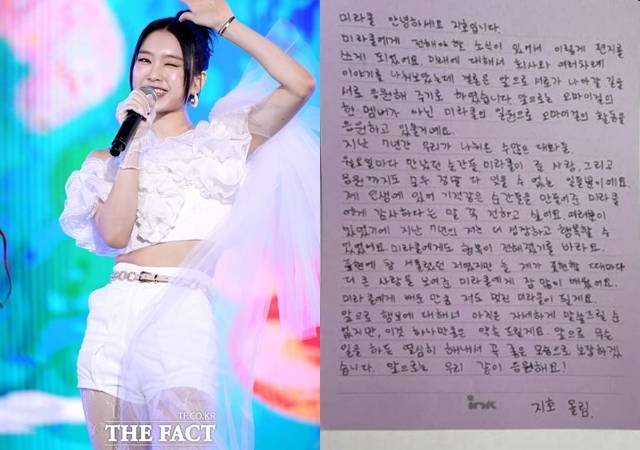 TF.CO.KR
THE FACT
미라클 안녕하세요 지호입니다.
미라클에게 전해야 할 소식이 있어서 이렇게 편지를
쓰게 되었어요. 미래에 대해서 회사와 여러차례
이야기를 나눠보았는데 결론은 앞으로 서로가 나아갈 길을
서로 응원해 주기로 하였습니다. 앞으로는 오마이걸의
한 멤버가 아닌 미라클의 일원으로 오마이걸의 활동을
응원하고 있을게요.
지난 7년간 우리가 나눠온 수많은 대화들,
월요일마다 만났던 순간들 미라클이 준 사랑, 그리고
응원까지도 모두 정말 다 잊을 수 없는 일들뿐이에요.
제 인생에 있어 기적같은 순간들을 만들어준 미라클
에게 감사하다는 말 꼭 전하고 싶어요. 여러분이
있었기에 지난 7년의 저는 더 성장하고 행복할 수
있었어요. 미라클에게도 행복이 전해졌기를 바라요.
표현에 참 서툴렀던 저였지만 늘 제가 표현할 때마다
더 큰 사랑을 보여준 미라클에게 참 많이 배웠어요.
미라클에게 배운 만큼 저도 멋진 미라클이 될게요.
앞으로 행보에 대해서 아직은 자세하게 말씀드릴 순
없지만, 이것 하나만큼은 약속 드릴게요. 앞으로 무슨
일을 하든 열심히 해내서 꼭 좋은 모습으로 보답하겠
습니다. 앞으로는 우리 같이 응원해요!
ink
지호 올림.